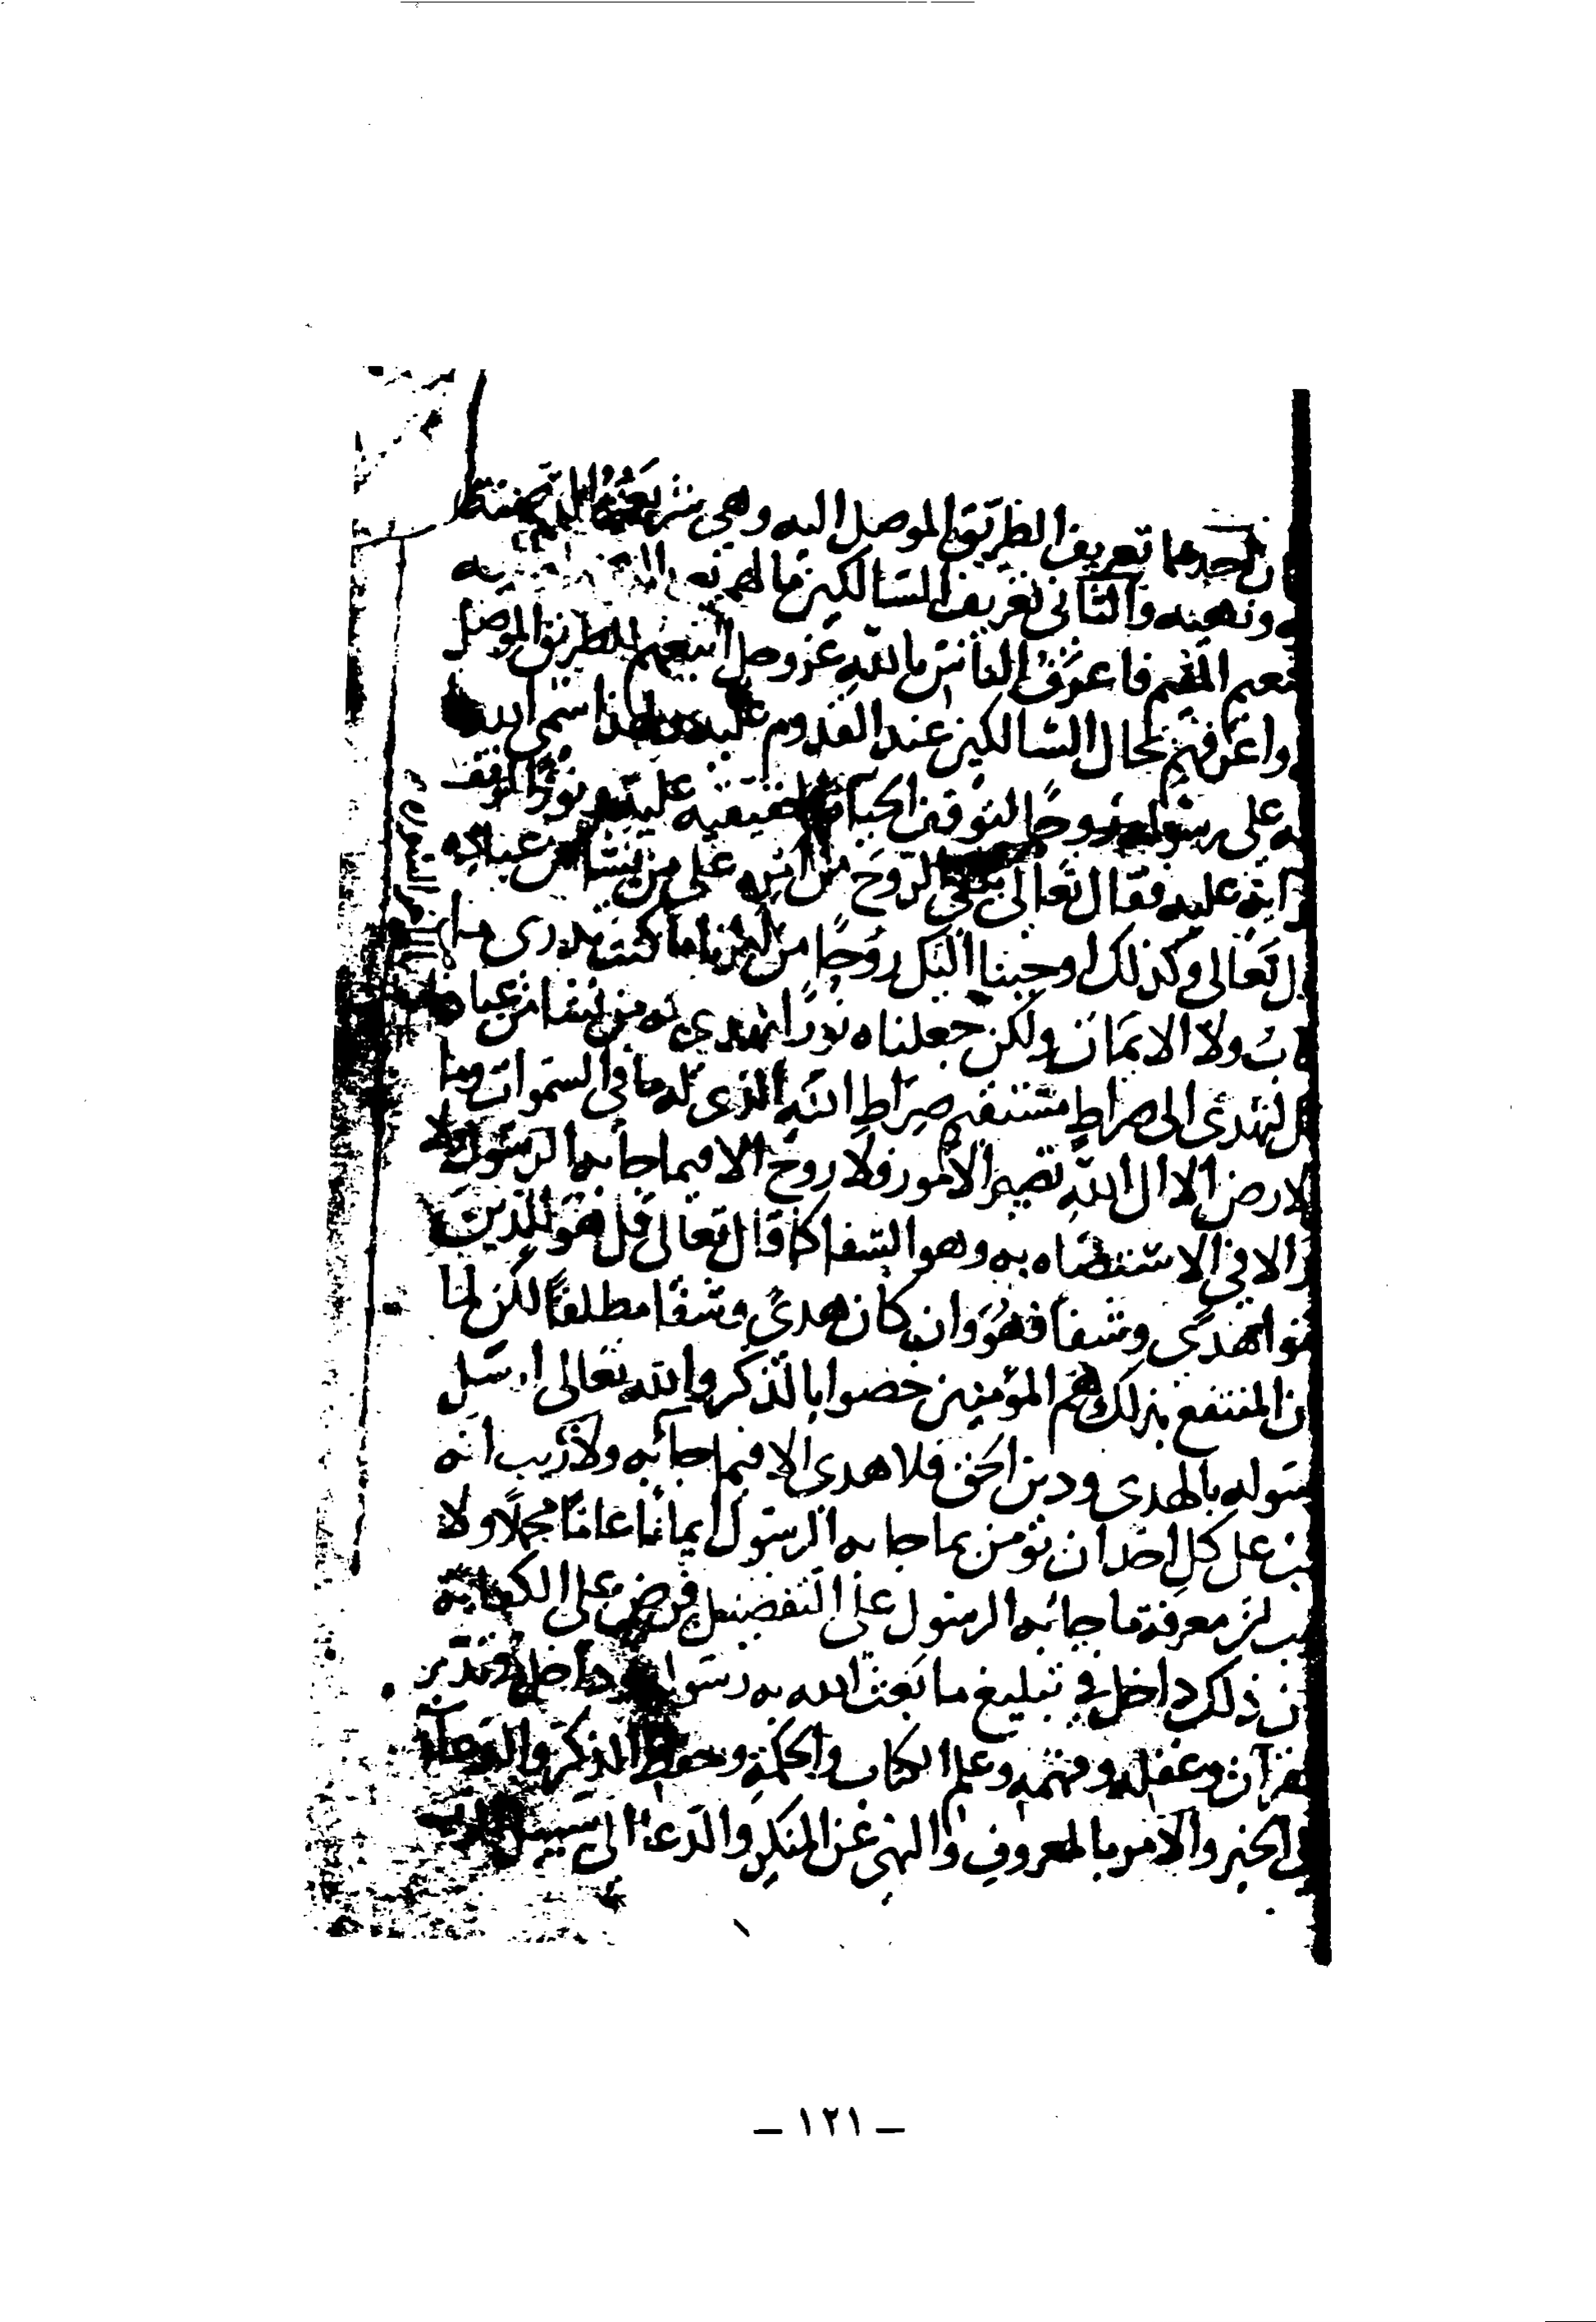 احدهما تعريف الطريق الموصل اليه وهي شريعته المتضمنة
ونهيه والثاني تعريف السالكين ما لهم
المقيم فاعرف الناس بالله عز وجل اتبعهم للطريق الموصل
واعرفهم بحال السالكين عند القدوم عليه ولهذا سمى الله
على رسوله روحا لتوقف الحياة الحقيقيه عليه ونورا لتوقف
عليه فقال تعالى يلقي الروح من امره على من يشا من عباده
ل تعالى وكذلك اوحينا اليك روحا من امرنا ما كنت تدري ما
ب ولا الايمان ولكن جعلناه نورا نهدي به من نشا من عبادنا
لتهدي الى صراط مستقيم صراط الله الذي له ما في السموات وما
لارض الا الى الله تصير الامور فلا روح الا فيما جا به الرسول ولا
الا في الاستضاه به وهو الشفا كما قال تعالى قل هو للذين
منوا هدى وشفا فهو وان كان هدى وشفا مطلقا لكن لما
ن المنتفع بذلك هم المؤمنين خصوا بالذكر والله تعالى ارسل
سوله بالهدى ودين الحق فلا هدى الا فيما جا به ولا ريب انه
جب على كل احد ان يؤمن بما جا به الرسول ايمانا عاما مجملا ولا
يب ان معرفة ما جا به الرسول على التفصيل فرض على الكفاية
ن ذلك داخل في تبليغ ما بعث الله به رسوله وداخل في تدبر
لقرآن وعقله وفهمه وعلم الكتاب والحكمة وحفظ الذكر والدعا
لى الخير والامر بالمعروف والنهي عن المنكر والدعا الى سبيل الرب
- ١٢١ -